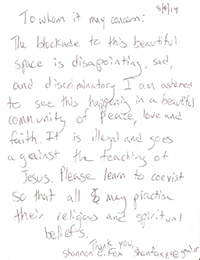 3/9/14
To whom it may concern:
The blockade to this beautiful
space is disapointing, sad,
and discriminatory I am ashamed
to see this happening in a beautiful
community of peace, love and
faith. It is illegal and goes
against the teaching of
Jesus. Please learn to coexist
so that all may practise
their religious and spiritual
beliefs.
Thank you,
Shannon C. Fox